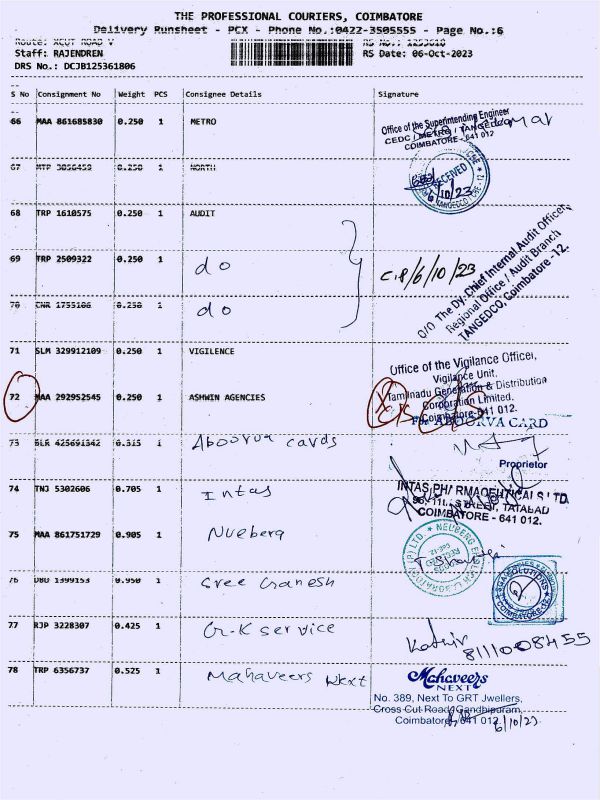 THE PROFESSIONAL COURIERS, COIMBATORE
Delivery Runsheet - PCX - Phone No.:0422-3505555 - Page No.:6
Route: XCUT ROAD V
Staff: RAJENDREN
RS Date: 06-Oct-2023
DRS No.: DCJB125361806
S No Consignment No Weight PCS Consignee Details Signature
66 MAA 861685830 0.250 1 METRO
Office of the Superintending Engineer
CEDC / METRO / TANGEDCO
COIMBATORE - 641 012
67 MTP 3056459 0.250 1 NORTH
RECEIVED
6/10/23
68 TRP 1610575 0.250 1 AUDIT
69 TRP 2509322 0.250 1 do
6/10/23
O/O The Dy. Chief Internal Audit Officer,
Regional Office / Audit Branch
TANGEDCO, Coimbatore -12.
70 CNR 1755106 0.250 1 do
71 SLM 329912109 0.250 1 VIGILENCE
Office of the Vigilance Officer,
Vigilance Unit,
Tamilnadu Generation & Distribution
Corporation Limited.
Coimbatore-641 012.
72 MAA 292952545 0.250 1 ASHWIN AGENCIES
For ABOORVA CARD
73 BLR 425691342 0.315 1 Aboorva cards
Proprietor
74 TNJ 5302606 0.705 1 Intas
INTAS PHARMACEUTICALS LTD.
STREET, TATABAD
COIMBATORE - 641 012.
75 MAA 861751729 0.905 1 Nueberg
76 DBD 1399153 0.950 1 Sree Ganesh
COIMBATORE-12
77 RJP 3228307 0.425 1 G.K service
8111008455
78 TRP 6356737 0.525 1 Mahaveers Next
Mahaveers
NEXT
No. 389, Next To GRT Jwellers,
Cross Cut Road, Gandhipuram,
Coimbatore 641 012
6/10/23